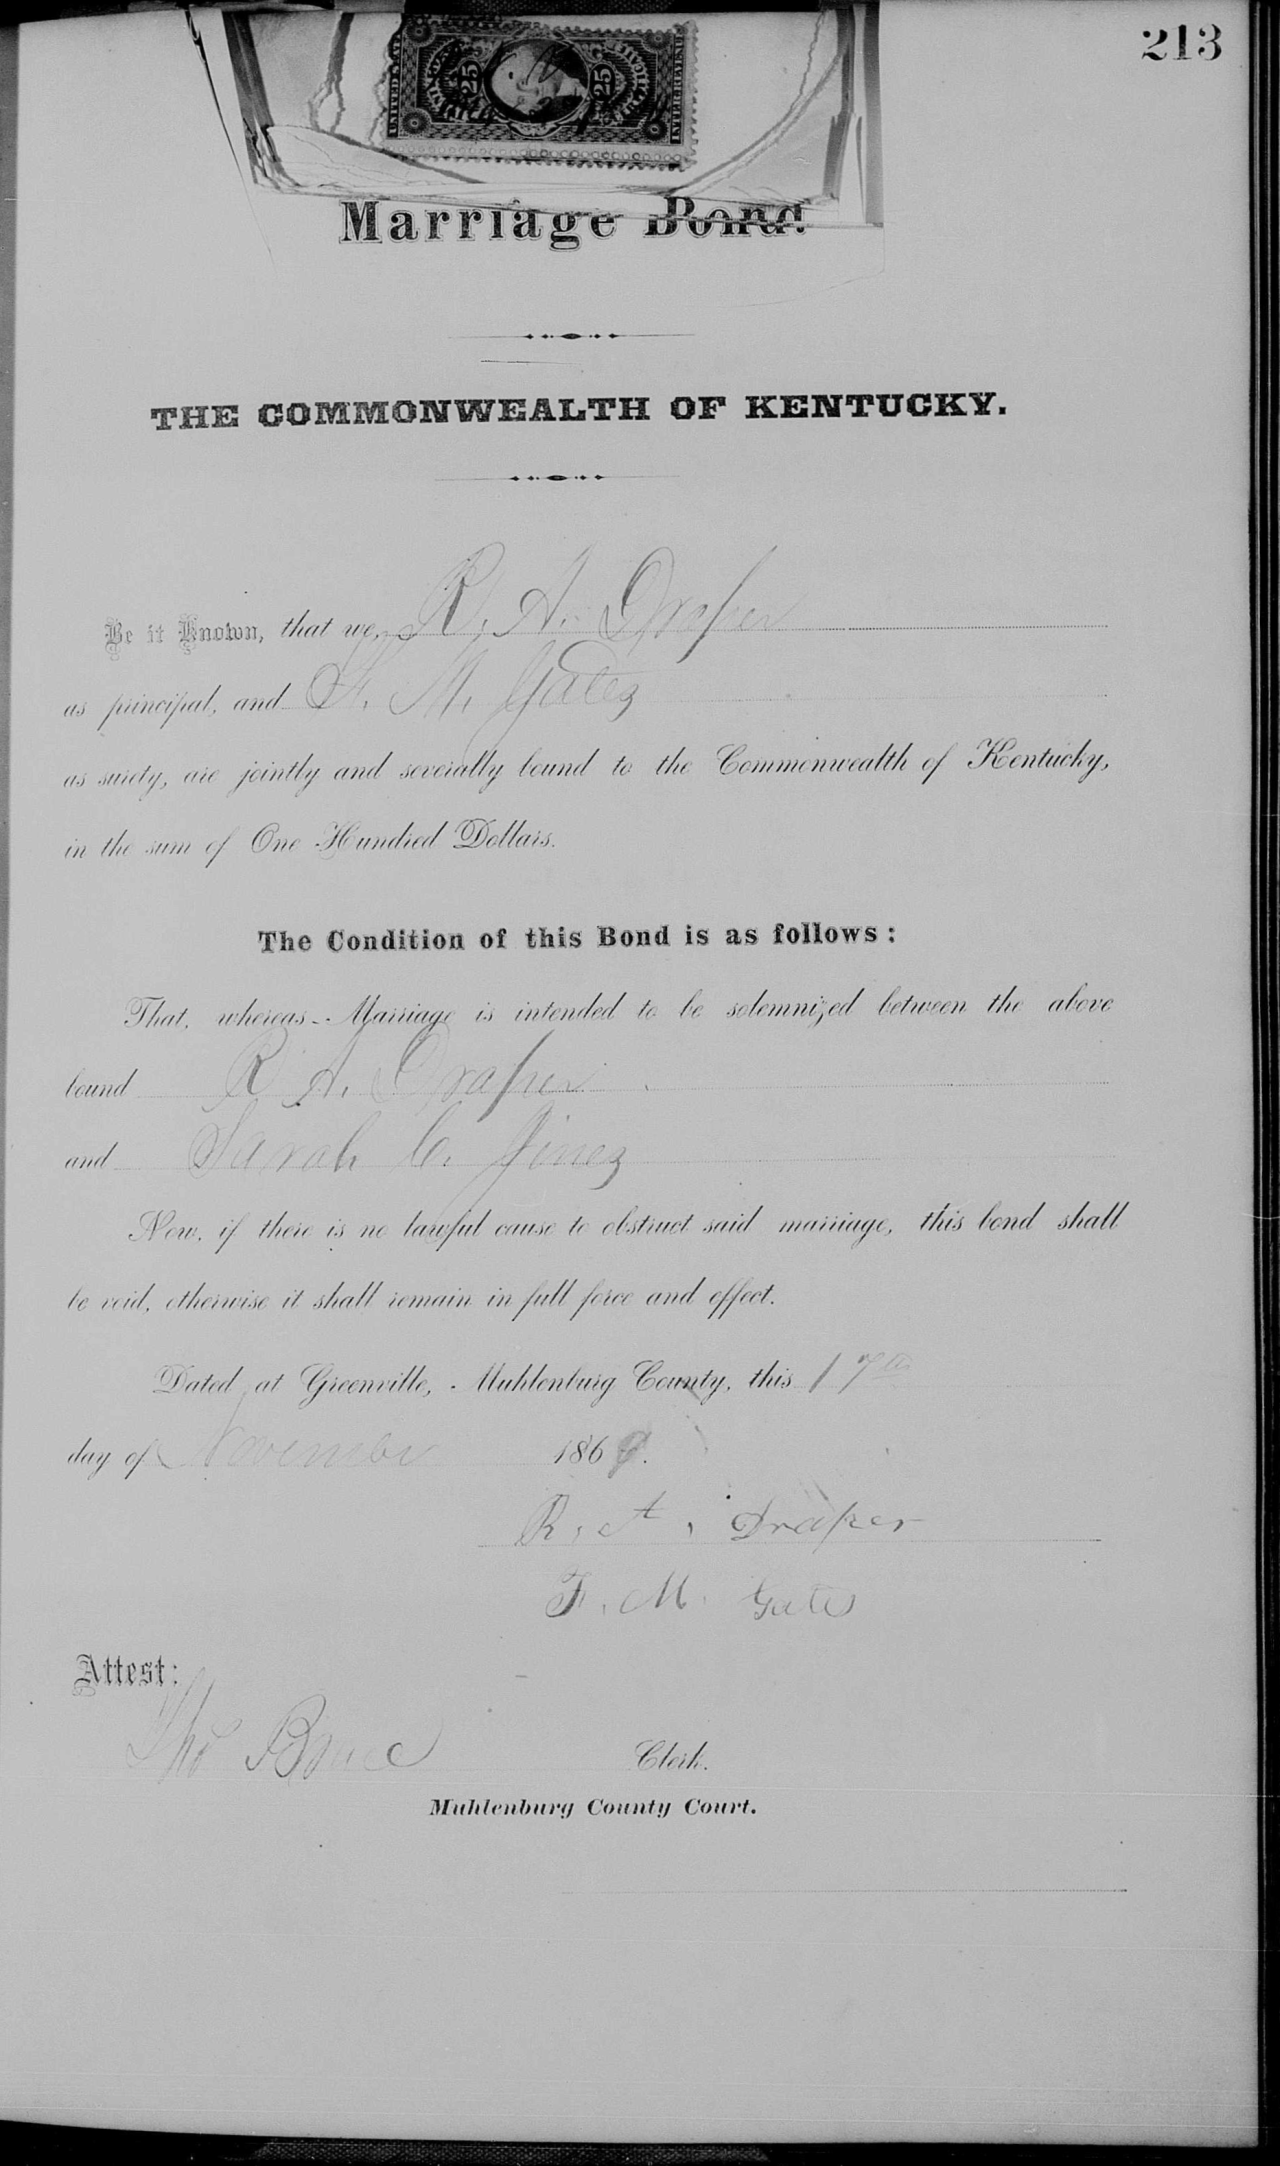 213
UNITED STATES
25 25
INTER. REVENUE
Marriage Bond.
THE COMMONWEALTH OF KENTUCKY.
Be it Known, that we, R. A. Draper
as principal, and F. M. Gates
as surety, are jointly and severally bound to the Commonwealth of Kentucky,
in the sum of One Hundred Dollars.
The Condition of this Bond is as follows:
That, whereas Marriage is intended to be solemnized between the above
bound R A. Draper
and Sarah C. Jines
Now, if there is no lawful cause to obstruct said marriage, this bond shall
be void, otherwise it shall remain in full force and effect.
Dated at Greenville, Muhlenburg County, this 17th
day of November 186
R. A. Draper
F. M. Gates
Attest:
Tho Bruce Clerk.
Muhlenburg County Court.